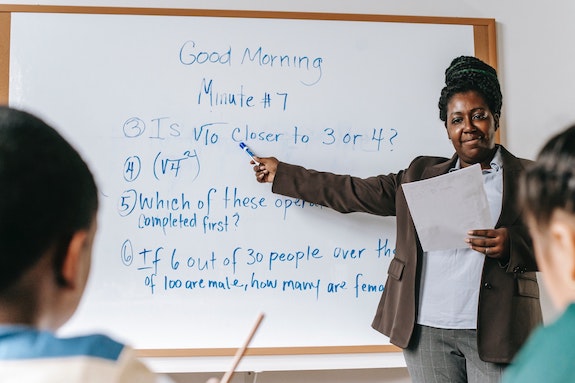 Good Morning
Minute #7
③ Is √10 Closer to 3 or 4?
④ (√4)²
⑤ Which of these
completed first?
⑥ If 6 out of 30 people over the
of 100 are male, how many are